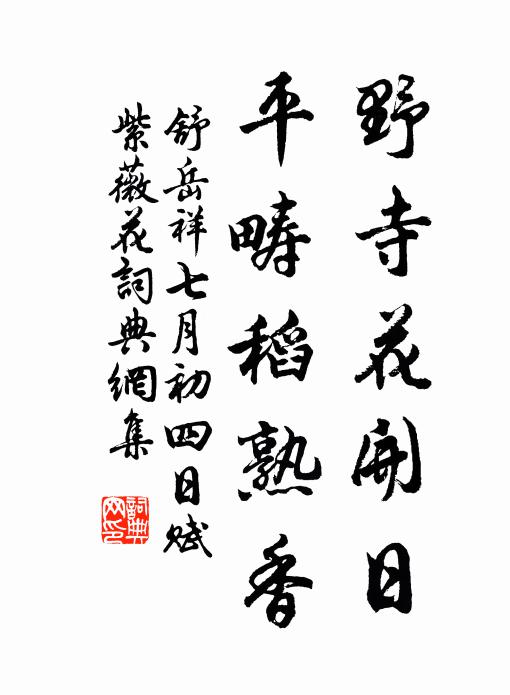 野寺花開日
平疇稻熟香
舒岳祥七月初四日賦
紫薇花詞典網集
詞典網印